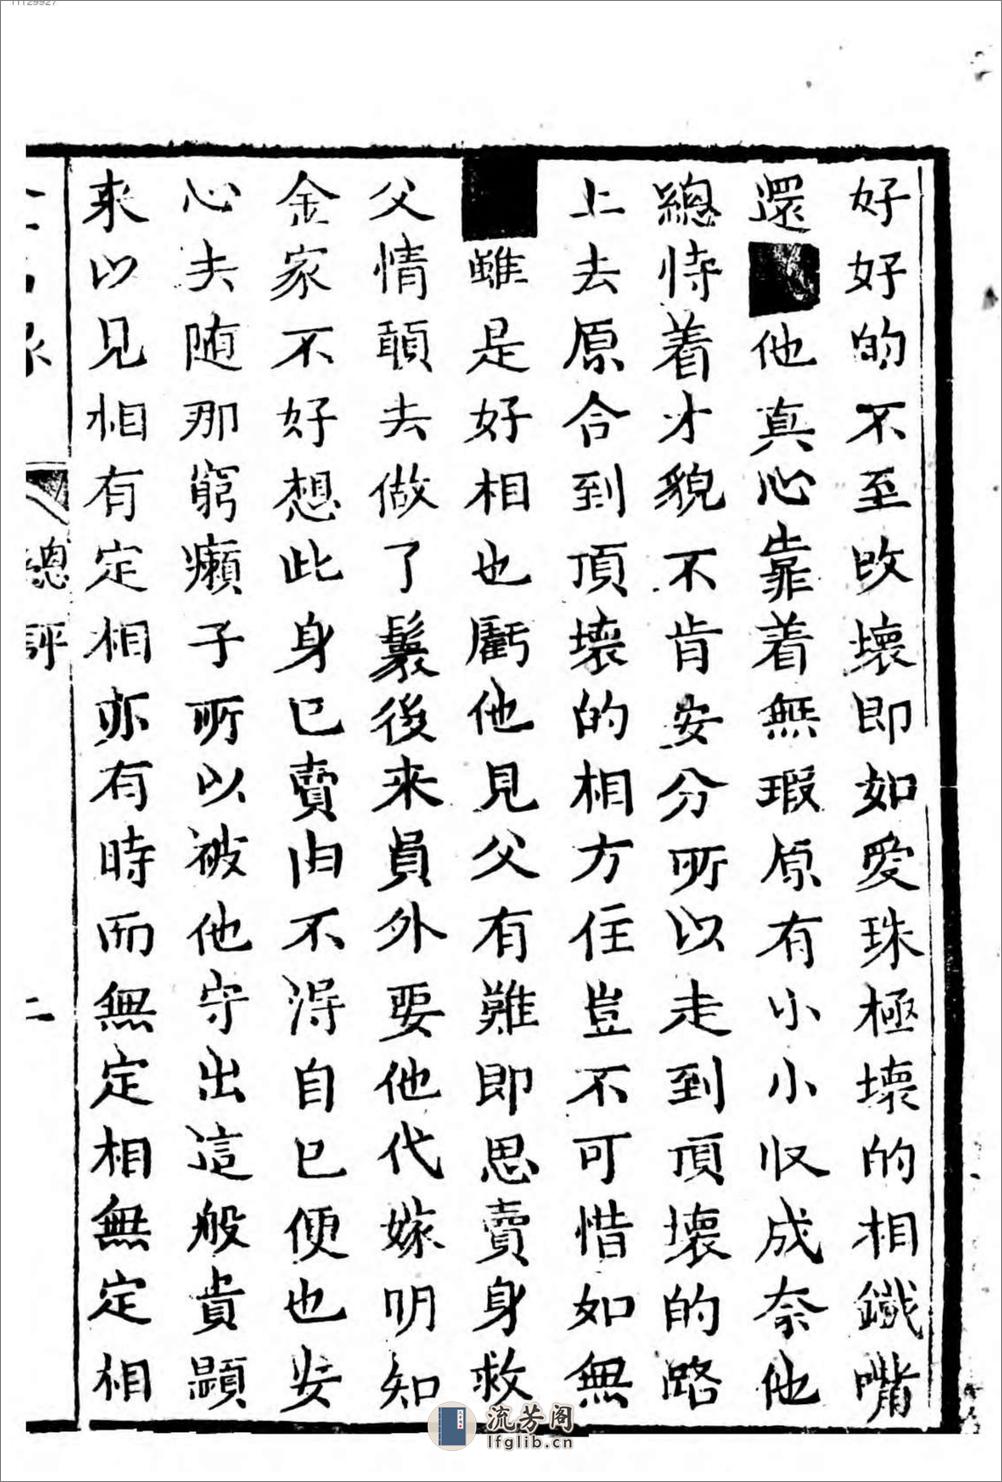 好好的不至改壞即如愛珠極壞的相鐵嘴
還他真心靠着無瑕原有小小收成奈他
總恃着才貌不肯安分所以走到頂壞的路
上去原合到頂壞的相方住豈不可惜如無
雖是好相也虧他見父有難即思賣身救
父情願去做了鬟後來員外要他代嫁明知
金家不好想此身已賣由不得自已便也安
心去随那窮癩子所以被他守出這般貴顯
来以見相有定相亦有時而無定相無定相
總評
二
流芳阁
lfglib.cn